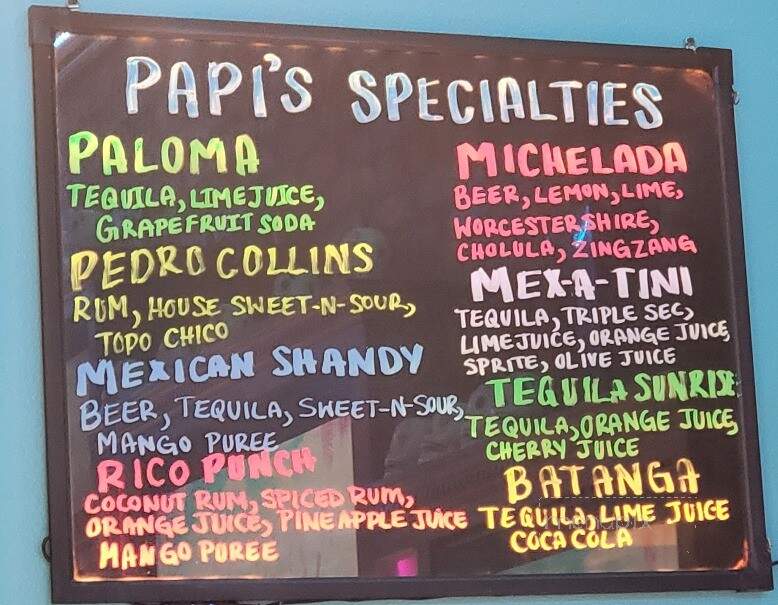 PAPI'S SPECIALTIES
PALOMA
TEQUILA, LIME JUICE,
GRAPEFRUIT SODA
PEDRO COLLINS
RUM, HOUSE SWEET-N-SOUR,
TOPO CHICO
MEXICAN SHANDY
BEER, TEQUILA, SWEET-N-SOUR,
MANGO PUREE
RICO PUNCH
COCONUT RUM, SPICED RUM,
ORANGE JUICE, PINEAPPLE JUICE
MANGO PUREE
MICHELADA
BEER, LEMON, LIME,
WORCESTERSHIRE,
CHOLULA, ZINGZANG
MEX-A-TINI
TEQUILA, TRIPLE SEC,
LIME JUICE, ORANGE JUICE,
SPRITE, OLIVE JUICE
TEQUILA SUNRISE
TEQUILA, ORANGE JUICE,
CHERRY JUICE
BATANGA
TEQUILA, LIME JUICE
COCA COLA